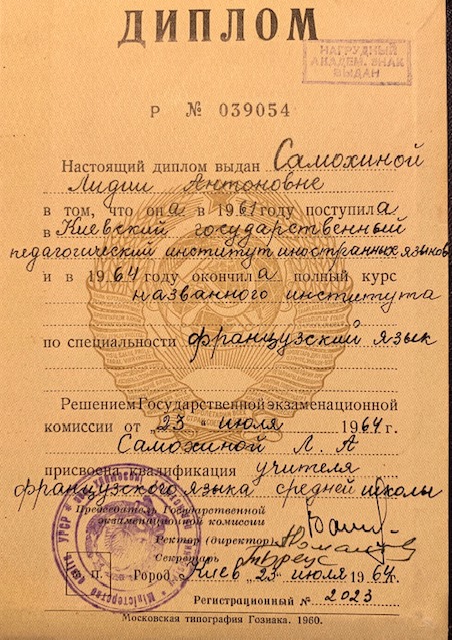 ДИПЛОМ
НАГРУДНЫЙ
АКАДЕМ. ЗНАК
ВЫДАН
Р № 039054
Настоящий диплом выдан Самохиной
Лидии Антоновне
в том, что она в 1961 году поступила
в Киевский государственный
педагогический институт иностранных языков
и в 1964 году окончила полный курс
названного института
по специальности французский язык
Решением Государственной экзаменационной
комиссии от „23“ июля 1964 г.
Самохиной Л. А
присвоена квалификация учителя
французского языка средней школы
Председатель Государственной
экзаменационной комиссии
Ректор (директор)
Секретарь
М. П.
Город Киев 23 июля 1964 г.
Регистрационный № 2023
Московская типография Гознака. 1960.